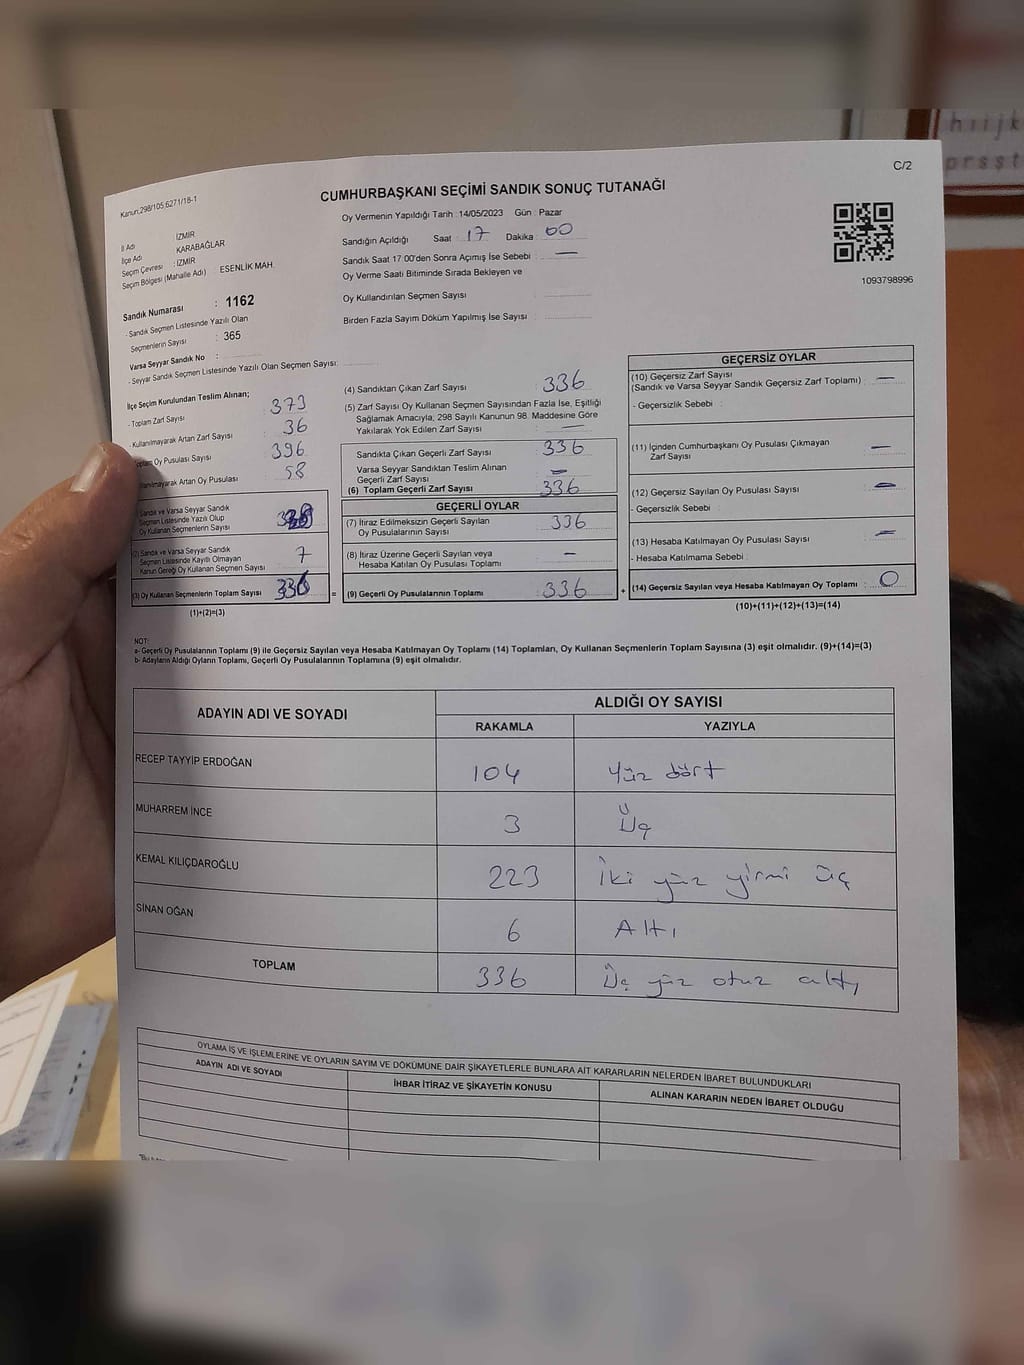 hıijk
prsşt
C/2
Kanun;298/105;6271/18-1
CUMHURBAŞKANI SEÇİMİ SANDIK SONUÇ TUTANAĞI
1093798996
İl Adı : İZMİR
İlçe Adı KARABAĞLAR
Seçim Çevresi : İZMİR
Seçim Bölgesi (Mahalle Adı) : ESENLİK MAH.
Sandık Numarası : 1162
- Sandık Seçmen Listesinde Yazılı Olan
Seçmenlerin Sayısı : 365
Varsa Seyyar Sandık No :
- Seyyar Sandık Seçmen Listesinde Yazılı Olan Seçmen Sayısı:
Oy Vermenin Yapıldığı Tarih : 14/05/2023 Gün : Pazar
Sandığın Açıldığı Saat : 17 Dakika : 00
Sandık Saat 17:00'den Sonra Açmış İse Sebebi : —
Oy Verme Saati Bitiminde Sırada Bekleyen ve
Oy Kullandırılan Seçmen Sayısı :
Birden Fazla Sayım Döküm Yapılmış İse Sayısı :
İlçe Seçim Kurulundan Teslim Alınan;
- Toplam Zarf Sayısı : 373
- Kullanılmayarak Artan Zarf Sayısı : 36
Toplam Oy Pusulası Sayısı : 396
Artan Oy Pusulası : 58
Sandık ve Varsa Seyyar Sandık
Seçmen Listesinde Yazılı Olup
Oy Kullanan Seçmenlerin Sayısı
(2) Sandık ve Varsa Seyyar Sandık
Seçmen Listesinde Kayıtlı Olmayan
Kanun Gereği Oy Kullanan Seçmen Sayısı : 7
(3) Oy Kullanan Seçmenlerin Toplam Sayısı : 336 =
(1)+(2)=(3)
(4) Sandıktan Çıkan Zarf Sayısı : 336
(5) Zarf Sayısı Oy Kullanan Seçmen Sayısından Fazla İse, Eşitliği
Sağlamak Amacıyla; 298 Sayılı Kanunun 98. Maddesine Göre
Yakılarak Yok Edilen Zarf Sayısı : —
Sandıkta Çıkan Geçerli Zarf Sayısı : 336
Varsa Seyyar Sandıktan Teslim Alınan
Geçerli Zarf Sayısı : —
(6) Toplam Geçerli Zarf Sayısı : 336
GEÇERLİ OYLAR
(7) İtiraz Edilmeksizin Geçerli Sayılan
Oy Pusulalarının Sayısı : 336
(8) İtiraz Üzerine Geçerli Sayılan veya
Hesaba Katılan Oy Pusulası Toplamı : —
(9) Geçerli Oy Pusulalarının Toplamı : 336 +
GEÇERSİZ OYLAR
(10) Geçersiz Zarf Sayısı : —
(Sandık ve Varsa Seyyar Sandık Geçersiz Zarf Toplamı)
- Geçersizlik Sebebi :
(11) İçinden Cumhurbaşkanı Oy Pusulası Çıkmayan
Zarf Sayısı : —
(12) Geçersiz Sayılan Oy Pusulası Sayısı : —
- Geçersizlik Sebebi :
(13) Hesaba Katılmayan Oy Pusulası Sayısı : —
- Hesaba Katılmama Sebebi :
(14) Geçersiz Sayılan veya Hesaba Katılmayan Oy Toplamı : 0
(10)+(11)+(12)+(13)=(14)
NOT:
a- Geçerli Oy Pusulalarının Toplamı (9) ile Geçersiz Sayılan veya Hesaba Katılmayan Oy Toplamı (14) Toplamları, Oy Kullanan Seçmenlerin Toplam Sayısına (3) eşit olmalıdır. (9)+(14)=(3)
b- Adayların Aldığı Oyların Toplamı, Geçerli Oy Pusulalarının Toplamına (9) eşit olmalıdır.
ADAYIN ADI VE SOYADI ALDIĞI OY SAYISI
RAKAMLA YAZIYLA
RECEP TAYYİP ERDOĞAN 104 Yüz dört
MUHARREM İNCE 3 Üç
KEMAL KILIÇDAROĞLU 223 İki yüz yirmi üç
SİNAN OĞAN 6 Altı
TOPLAM 336 Üç yüz otuz altı
OYLAMA İŞ VE İŞLEMLERİNE VE OYLARIN SAYIM VE DÖKÜMÜNE DAİR ŞİKAYETLERLE BUNLARA AİT KARARLARIN NELERDEN İBARET BULUNDUKLARI
ADAYIN ADI VE SOYADI İHBAR İTİRAZ VE ŞİKAYETİN KONUSU ALINAN KARARIN NEDEN İBARET OLDUĞU